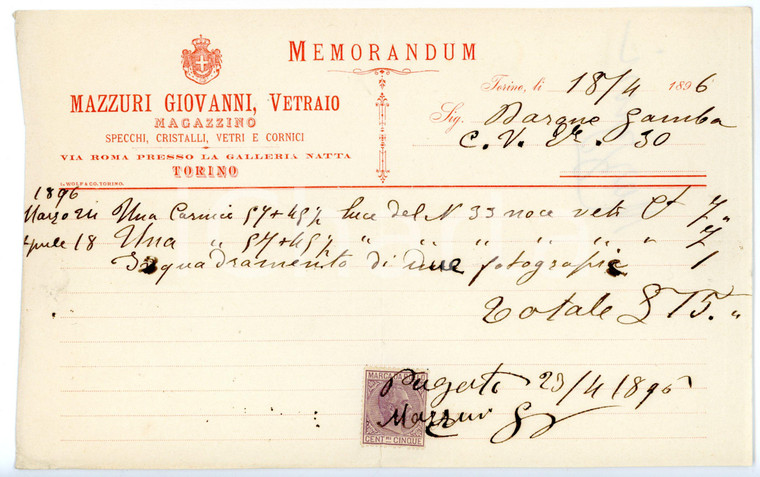 MEMORANDUM
MAZZURI GIOVANNI, VETRAIO
MAGAZZINO
SPECCHI, CRISTALLI, VETRI E CORNICI
VIA ROMA PRESSO LA GALLERIA NATTA
TORINO
L. WOLF & CO. TORINO.
Torino, li 18/4 1896
Sig. Barone Gamba
C. V. E. 30
1896
Marzo 24 Una Cornice 57+45½ luce del N 33 noce £ 7 "
Aprile 18 Una " 57+45½ " " " " " " 7
Isquadramento di due fotografie 1
Totale £ 15. "
MARCA DA BOLLO
CENT.MI CINQUE
Pagato 23/4 1896
Mazzuri G